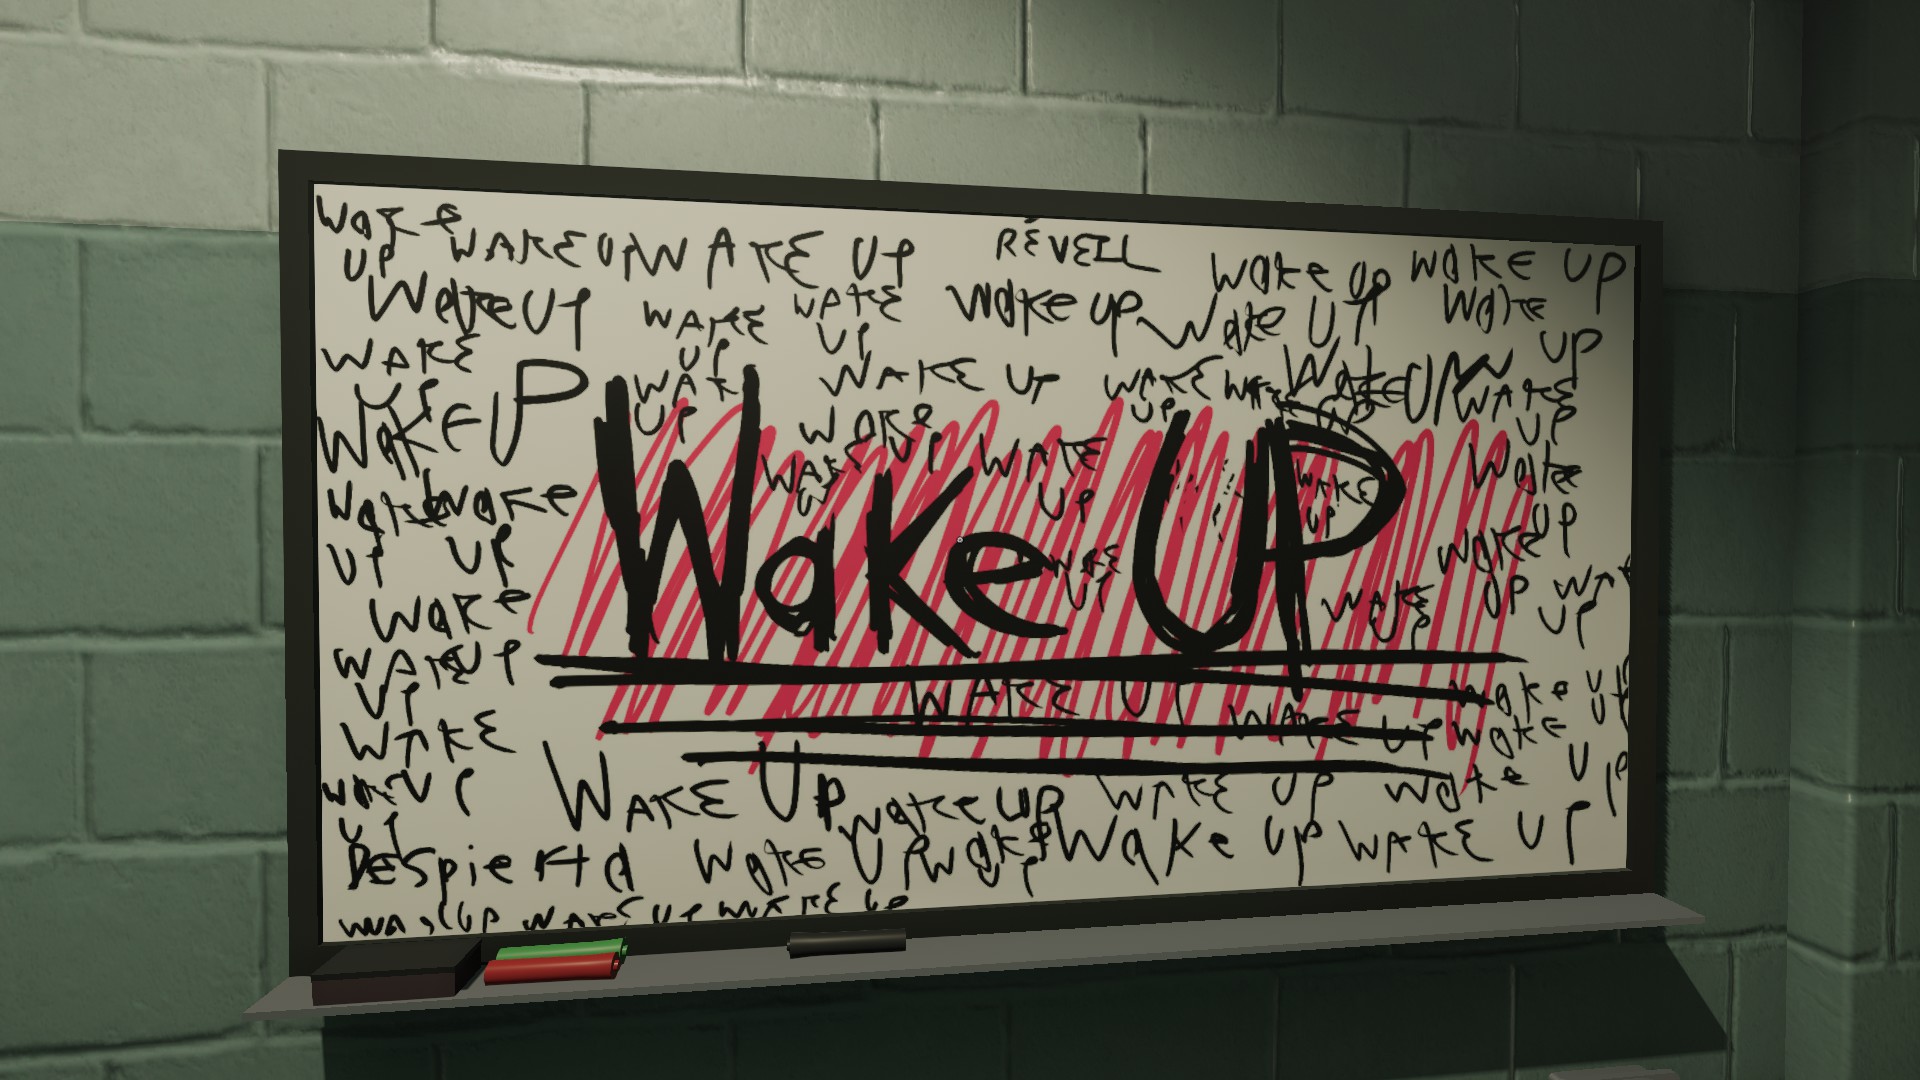 Wake UP
WAKE UP
WAKE UP
RÉVEIL
Wake up
WAKE UP
Wake UP
WAKE UP
WAKE UP
Wake up
Wake UP
Wake UP
WAKE UP
WAKE UP
WAKE UP
WAKE UP
WAKE UP
WAKE UP
WAKE UP
WAKE UP
WAKE UP
WAKE UP
Wake UP
Wake UP
Wake UP
WAKE UP
Wake UP
Wake UP
WAKE UP
Wake UP
WAKE UP
WAKE UP
WAKE UP
WAKE UP
Wake UP
WAKE UP
Wake up
WAKE UP
Wake UP
Despierta
Wake UP
Wake UP
Wake UP
WAKE UP
WAKE UP
WAKE UP